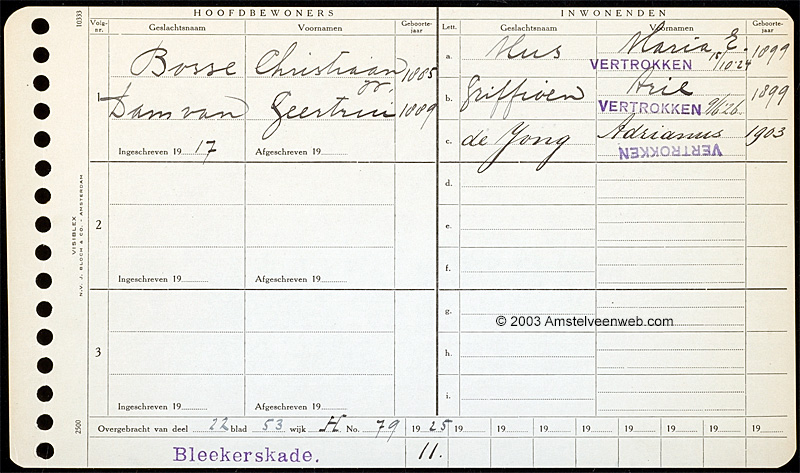 HOOFDBEWONERS
INWONENDEN
10333
Volg-nr.
Geslachtsnaam
Voornamen
Geboorte-jaar
Lett.
Geslachtsnaam
Voornamen
Geboorte-jaar
Bosse Christiaan 1885
a. Mus Maria E. 1899
VERTROKKEN 15/10-24
1
Dam van Geertrui 1889
b. Griffioen Arie 1899
VERTROKKEN
c. de Jong Adrianus 1903
VERTROKKEN
Ingeschreven 19 17 Afgeschreven 19
d.
2
e.
f.
Ingeschreven 19 Afgeschreven 19
VISIBLEX
N.V. J. BLOCH & CO. - AMSTERDAM
g.
© 2003 Amstelveenweb.com
3
h.
i.
Ingeschreven 19 Afgeschreven 19
2500
Overgebracht van deel 22 blad 53 wijk H No. 79 19 25 19 19 19 19 19 19 19 19
Bleekerskade. 11.